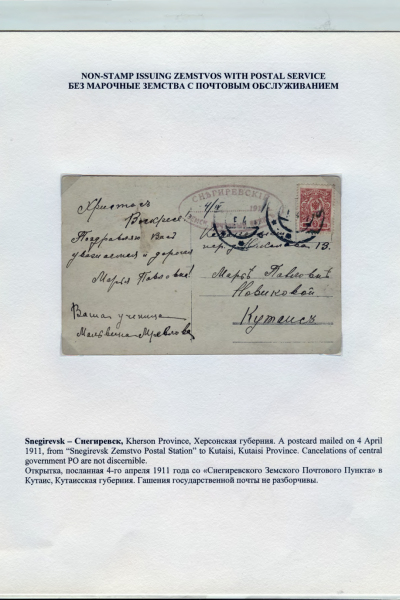 NON-STAMP ISSUING ZEMSTVOS WITH POSTAL SERVICE
БЕЗ МАРОЧНЫЕ ЗЕМСТВА С ПОЧТОВЫМ ОБСЛУЖИВАНИЕМ
Христосъ
Воскресе!
Поздравляю Васъ
уважаемая и дорогая
Марья Павловна!
Ваша ученица
4/IV
СНѢГИРЕВСКІЙ
191
5 4
19.
Марьѣ Павловнѣ
Новиковой
Кутаисъ
Snegirevsk – Снегиревск, Kherson Province, Херсонская губерния. A postcard mailed on 4 April
1911, from “Snegirevsk Zemstvo Postal Station” to Kutaisi, Kutaisi Province. Cancelations of central
government PO are not discernible.
Открытка, посланная 4-го апреля 1911 года со «Снегиревского Земского Почтового Пункта» в
Кутаис, Кутаисская губерния. Гашения государственной почты не разборчивы.